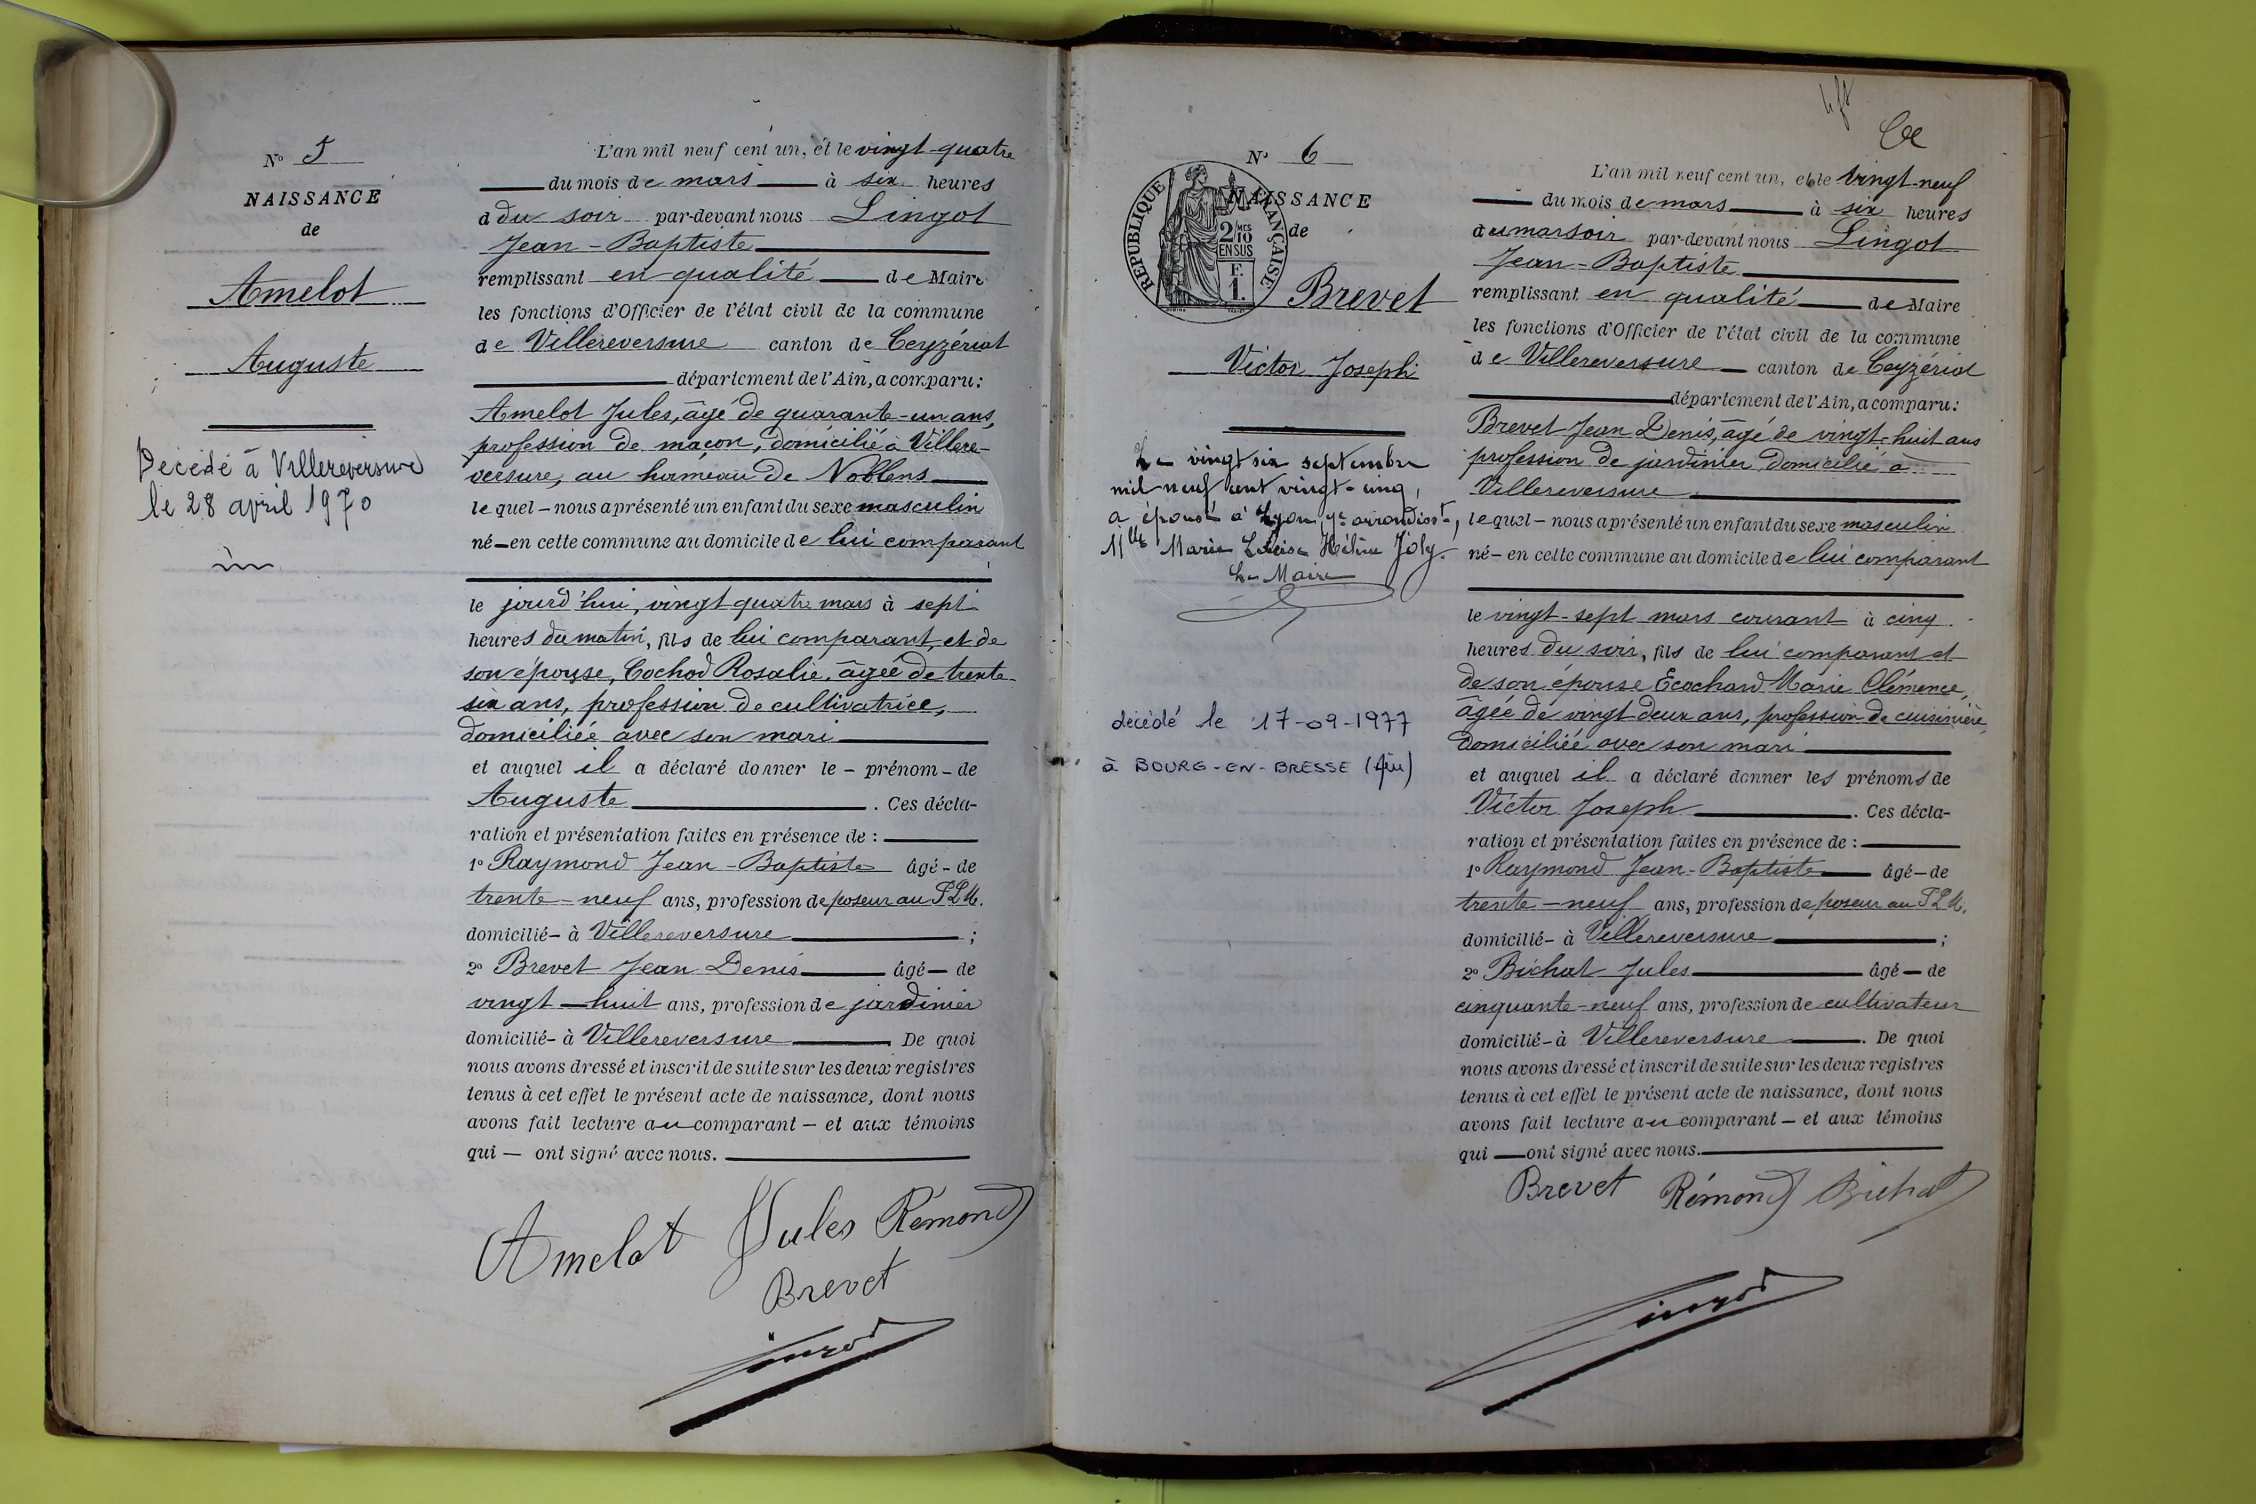 N° 5
NAISSANCE
de
Amelot
Auguste
Décédé à Villereversure
le 28 avril 1970
L'an mil neuf cent un, et le vingt-quatre
du mois de mars à six heures
d du soir par-devant nous Lingot
Jean-Baptiste
remplissant en qualité de Maire
les fonctions d'Officier de l'état civil de la commune
de Villereversure canton de Ceyzériat
département de l'Ain, a comparu:
Amelot Jules, âgé de quarante-un ans,
profession de maçon, domicilié à Villere-
versure, au hameau de Noblens
lequel - nous a présenté un enfant du sexe masculin
né - en cette commune au domicile de lui comparant
le jourd'hui, vingt quatre mars à sept
heures du matin, fils de lui comparant, et de
son épouse, Cochod Rosalie, âgée de trente-
six ans, profession de cultivatrice,
domiciliée avec son mari
et auquel il a déclaré donner le - prénom - de
Auguste . Ces décla-
ration et présentation faites en présence de :
1° Raymond Jean-Baptiste âgé - de
trente-neuf ans, profession de poseur au P.L.M.
domicilié - à Villereversure ;
2° Brevet Jean Denis âgé - de
vingt-huit ans, profession de jardinier
domicilié - à Villereversure De quoi
nous avons dressé et inscrit de suite sur les deux registres
tenus à cet effet le présent acte de naissance, dont nous
avons fait lecture au comparant - et aux témoins
qui - ont signé avec nous.
Amelot Jules Rémond
Brevet
Lingot
N° 6
NAISSANCE
de
RÉPUBLIQUE FRANÇAISE
2/10 MES
EN SUS
F.
1.
Brevet
Victor Joseph
Le vingt six septembre
mil neuf cent vingt-cinq,
a épousé à Lyon, arrondisst,
Mlle Marie Louise Hélène Joly.
Le Maire
décédé le 17-09-1977
à BOURG-EN-BRESSE (Ain)
L'an mil neuf cent un, et le vingt-neuf
du mois de mars à six heures
du soir par-devant nous Lingot
Jean-Baptiste
remplissant en qualité de Maire
les fonctions d'Officier de l'état civil de la commune
de Villereversure canton de Ceyzériat
département de l'Ain, a comparu:
Brevet Jean Denis, âgé de vingt-huit ans
profession de jardinier domicilié à
Villereversure
lequel - nous a présenté un enfant du sexe masculin
né - en cette commune au domicile de lui comparant
le vingt-sept mars courant à cinq
heures du soir, fils de lui comparant et
de son épouse Ecochard Marie Clémence,
âgée de vingt deux ans, profession de cuisinière,
domiciliée avec son mari
et auquel il a déclaré donner les prénoms de
Victor Joseph . Ces décla-
ration et présentation faites en présence de :
1° Raymond Jean-Baptiste âgé - de
trente-neuf ans, profession de poseur au P.L.M.
domicilié - à Villereversure ;
2° Bichat Jules âgé - de
cinquante-neuf ans, profession de cultivateur
domicilié - à Villereversure . De quoi
nous avons dressé et inscrit de suite sur les deux registres
tenus à cet effet le présent acte de naissance, dont nous
avons fait lecture au comparant - et aux témoins
qui - ont signé avec nous.
Brevet Rémond Bichat
Lingot